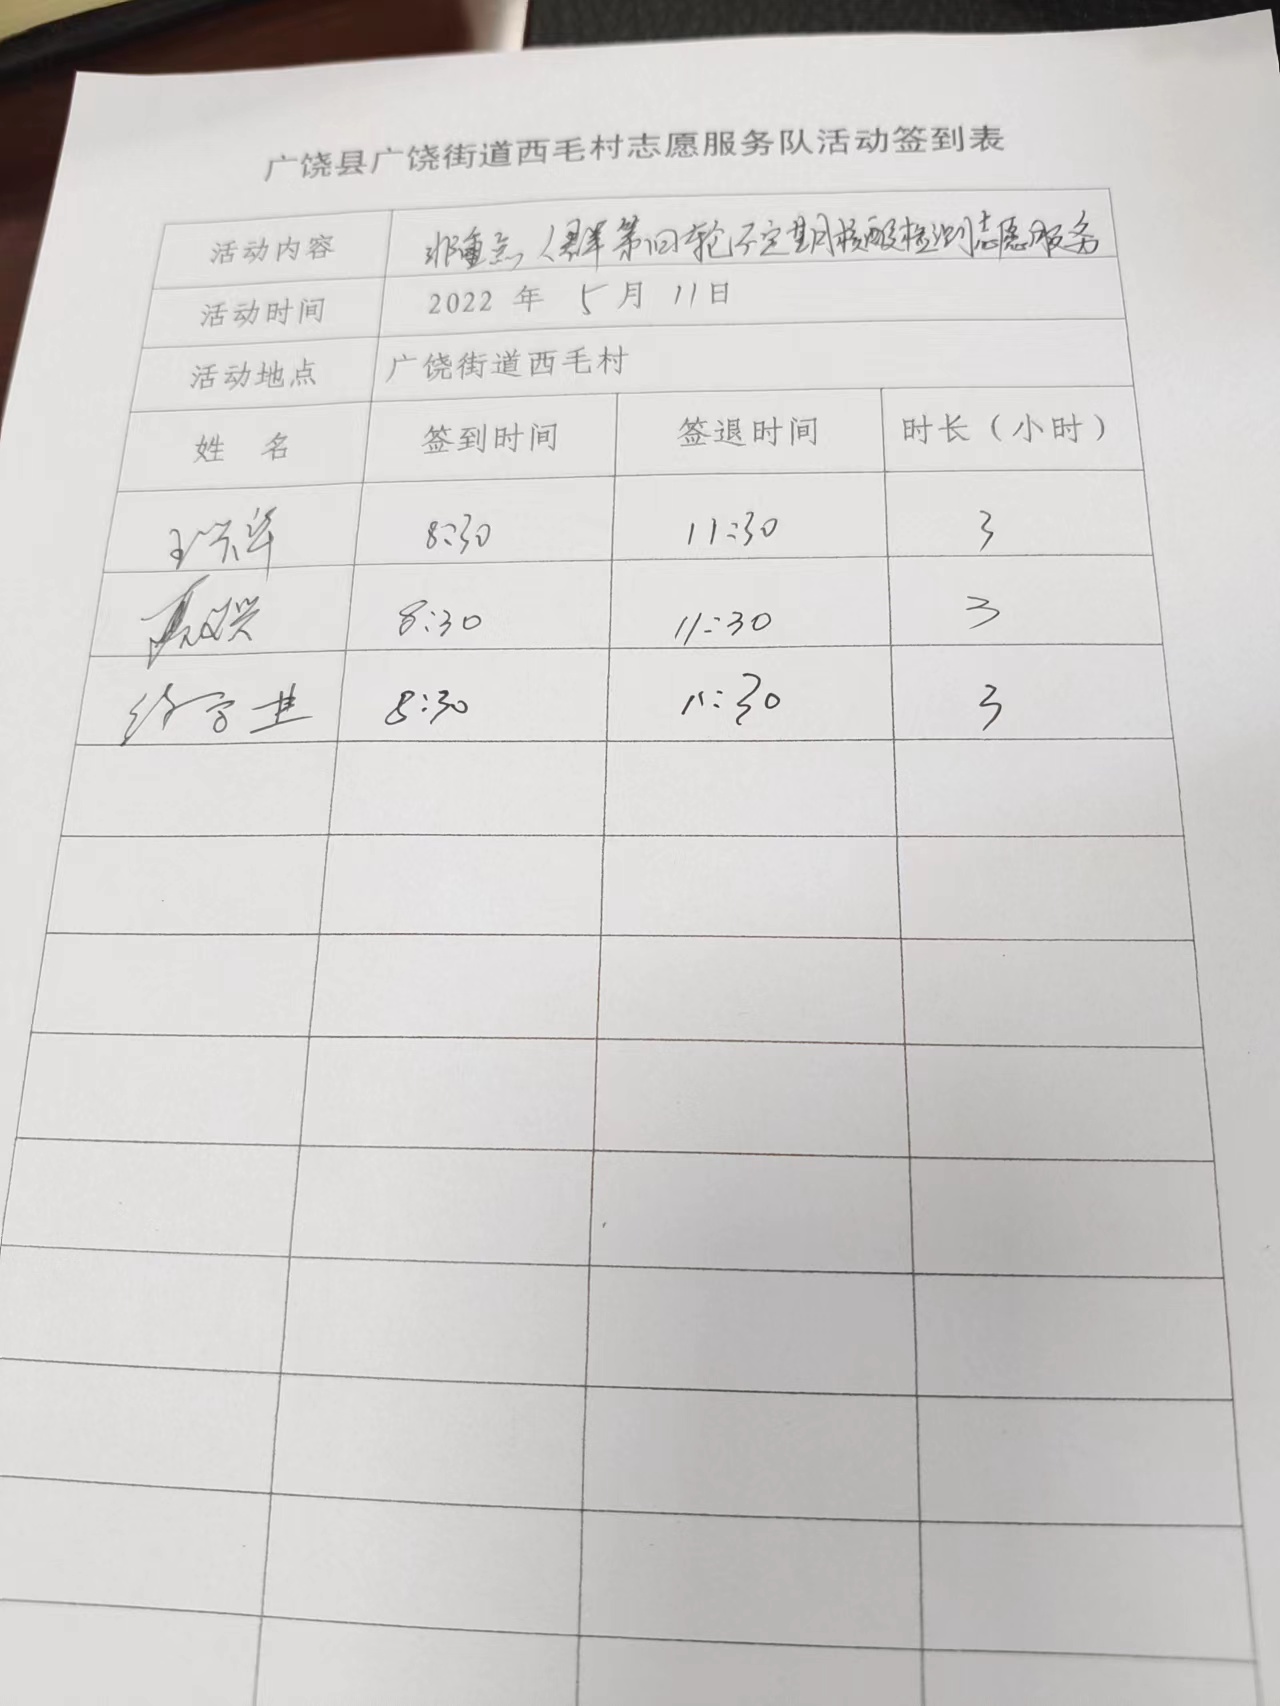 广饶县广饶街道西毛村志愿服务队活动签到表
活动内容 非重点人群第四轮不定期核酸检测志愿服务
活动时间 2022 年 5 月 11日
活动地点 广饶街道西毛村
姓 名 签到时间 签退时间 时长（小时）
8:30 11:30 3
8:30 11:30 3
8:30 11:30 3